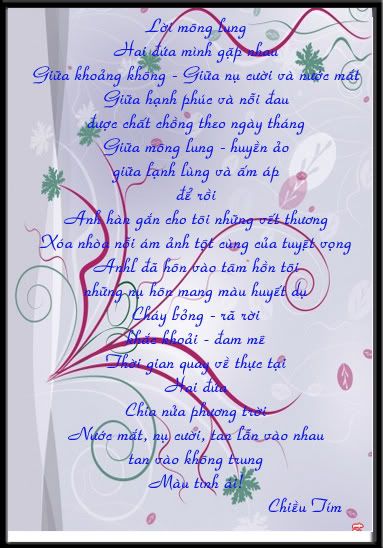 Lời mông lung
Hai đứa mình gặp nhau
Giữa khoảng không - Giữa nụ cười và nước mắt
Giữa hạnh phúc và nỗi đau
được chất chồng theo ngày tháng
Giữa mông lung - huyền ảo
giữa lạnh lùng và ấm áp
để rồi
Anh hàn gắn cho tôi những vết thương
Xóa nhòa nỗi ám ảnh tột cùng của tuyệt vọng
Anh! đã hôn vào tâm hồn tôi
những nụ hôn mang màu huyết dụ
Cháy bỏng - rã rời
khắc khoải - đam mê
Thời gian quay về thực tại
Hai đứa
Chia nửa phương trời
Nước mắt, nụ cười, tan lẫn vào nhau
tan vào không trung
Màu tình ái!
Chiều Tím